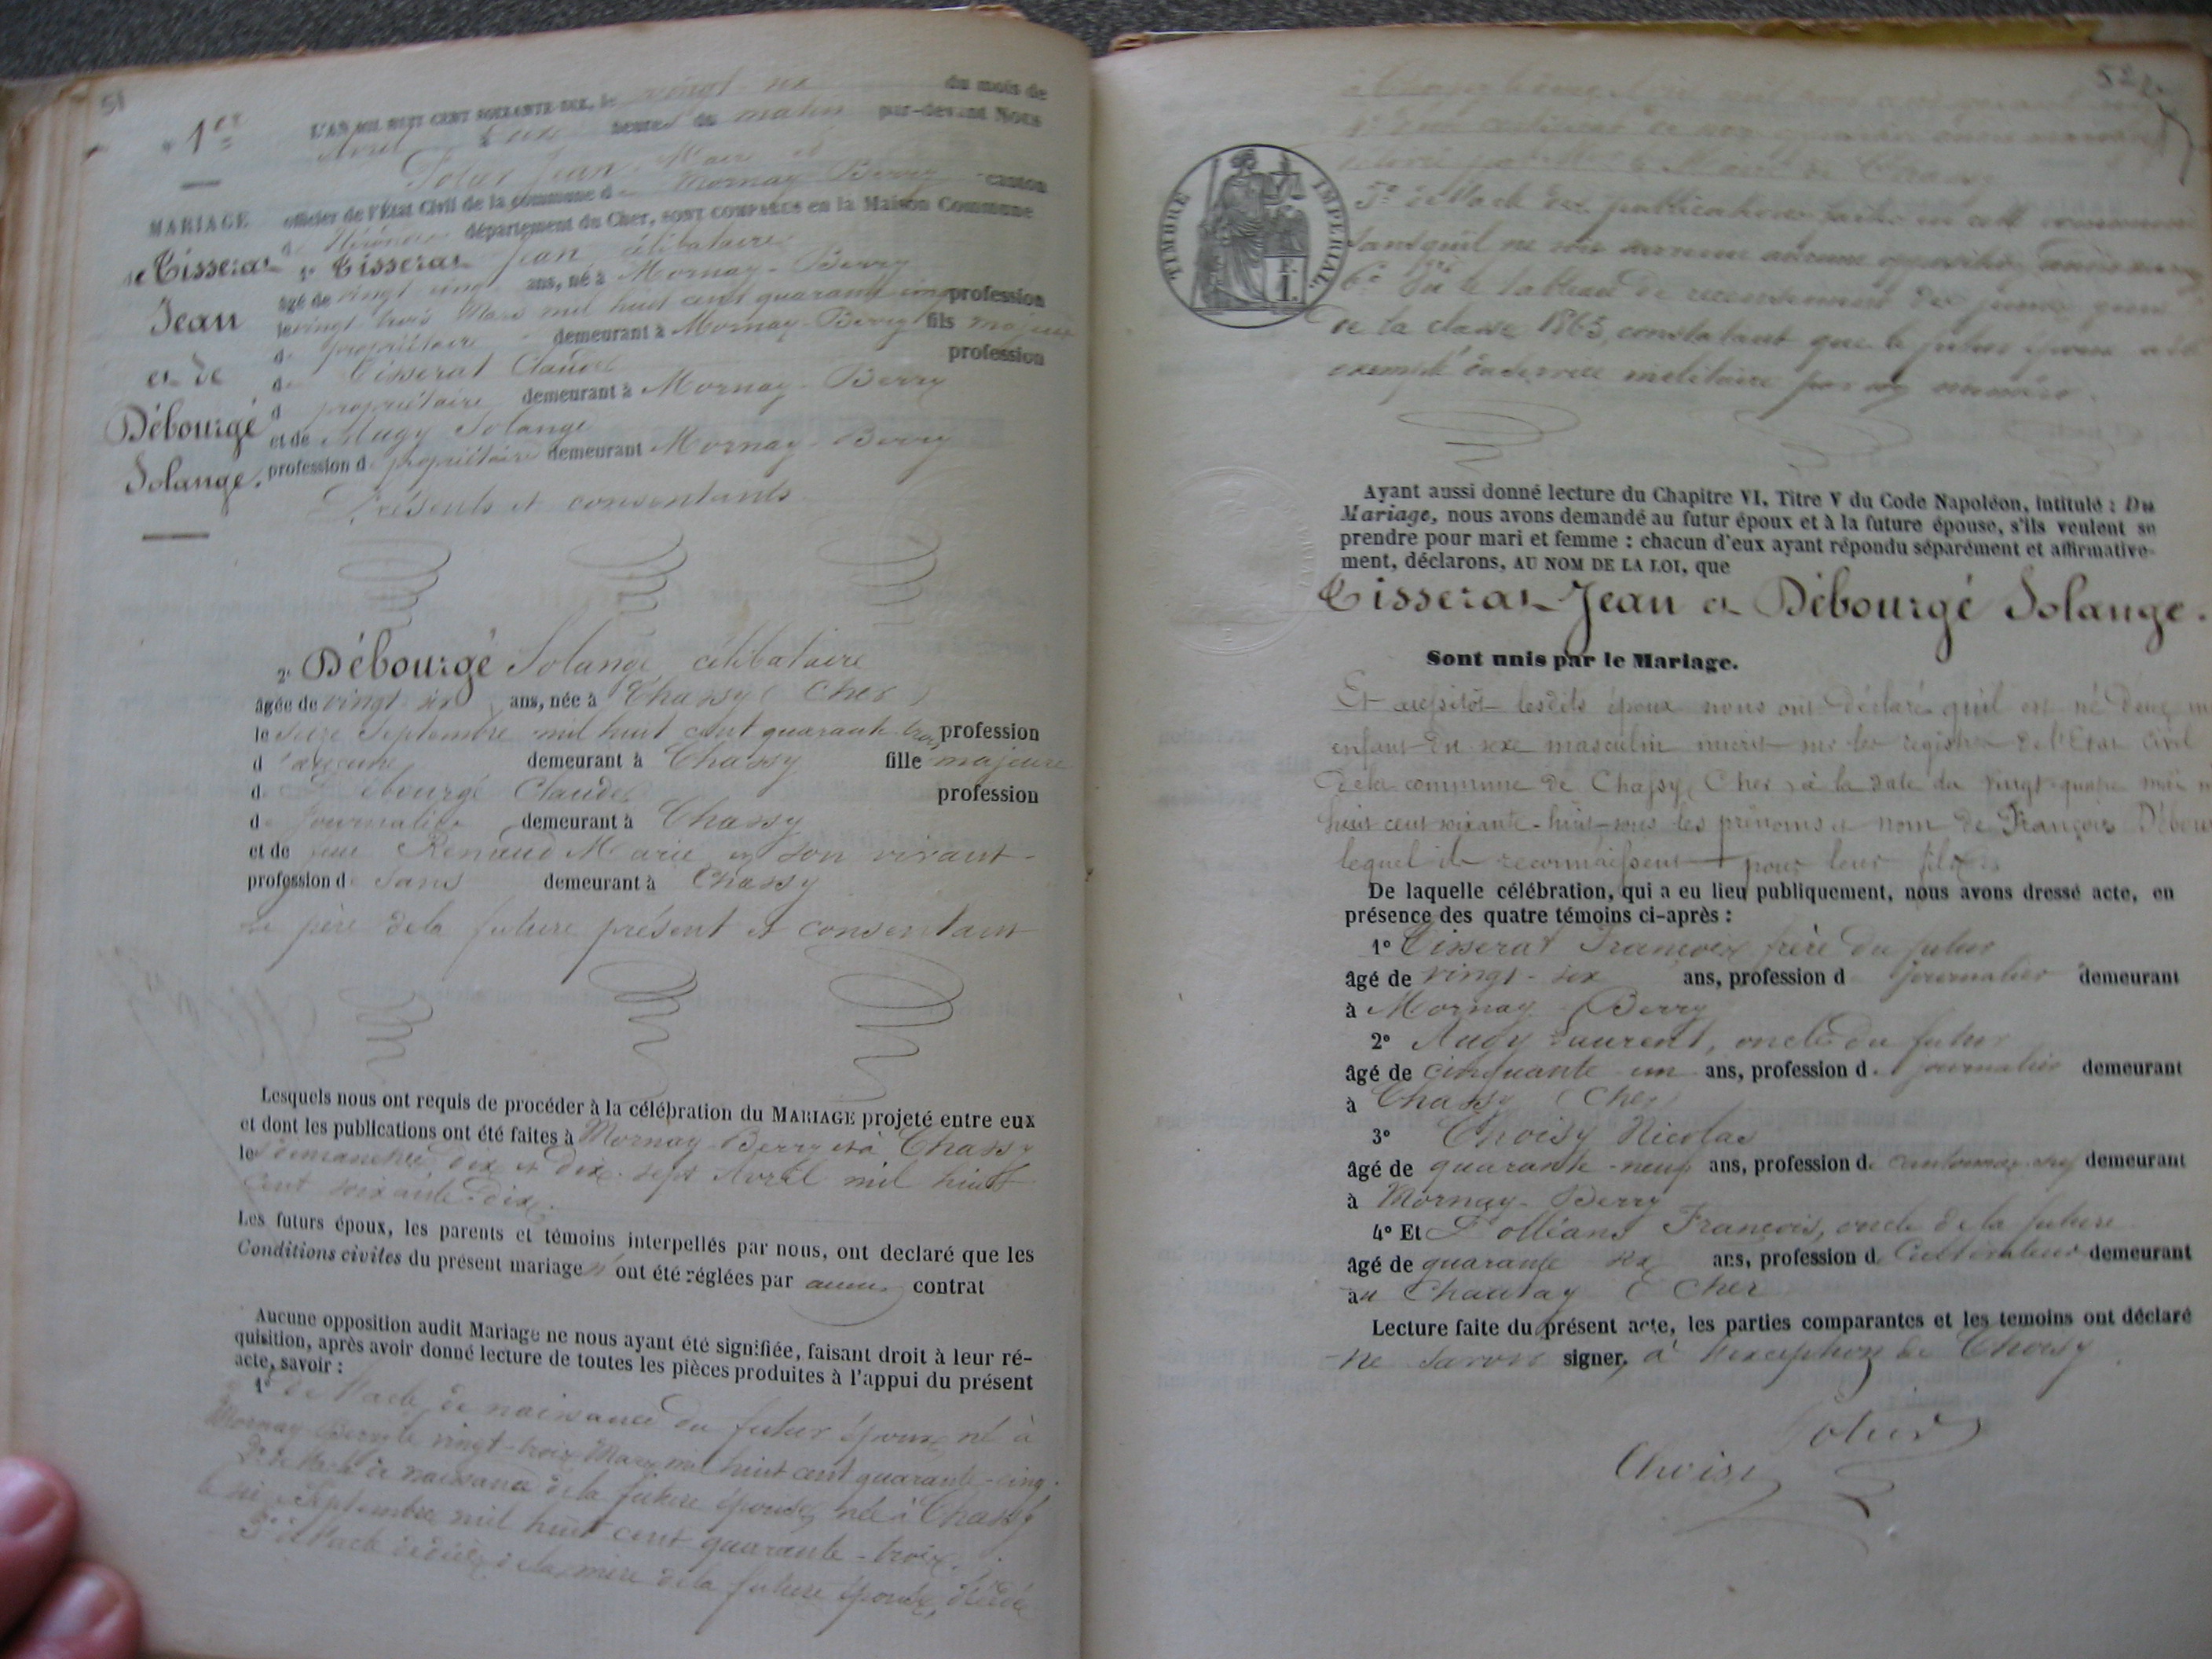 51
1er
L'AN MIL HUIT CENT SOIXANTE-DIX, le vingt-six du mois de
Avril à dix heures du matin par-devant Nous
Jean, Maire et
officier de l'État Civil de la commune de Mornay-Berry canton
de Nérondes département du Cher, SONT COMPARUS en la Maison Commune
MARIAGE
de Tisserat
Jean
et de
Débourgé
Solange.
1° Tisserat Jean, célibataire
âgé de vingt cinq ans, né à Mornay-Berry
le vingt trois Mars mil huit cent quarante cinq profession
de propriétaire demeurant à Mornay-Berry fils majeur
de Tisserat Claude profession
d propriétaire demeurant à Mornay-Berry
et de Augy Solange
profession de propriétaire demeurant Mornay-Berry
Présents et consentants
2° Débourgé Solange célibataire
âgée de vingt-six ans, née à Chassy (Cher)
le Septembre mil huit cent quarante-trois profession
d'aucune demeurant à Chassy fille majeure
de Débourgé Claude profession
de Journalier demeurant à Chassy
et de feue Renaud Marie en son vivant
profession de sans demeurant à Chassy
Le père de la future présent et consentant
Lesquels nous ont requis de procéder à la célébration du MARIAGE projeté entre eux
et dont les publications ont été faites à Mornay-Berry et à Chassy
les dimanches dix et dix-sept Avril mil huit
cent soixante-dix.
Les futurs époux, les parents et témoins interpellés par nous, ont declaré que les
Conditions civiles du présent mariage n'ont été réglées par aucun contrat
Aucune opposition audit Mariage ne nous ayant été signifiée, faisant droit à leur ré-
quisition, après avoir donné lecture de toutes les pièces produites à l'appui du présent
acte, savoir :
1° de l'acte de naissance du futur époux né à
Mornay-Berry le vingt-trois Mars mil huit cent quarante-cinq.
2° de l'acte de naissance de la future épouse, née à Chassy
le Septembre mil huit cent quarante-trois.
3° de l'acte de décès de la mère de la future épouse, décédée
52
TIMBRE IMPÉRIAL
1 F.
à Chassy
4° certificat de non
délivré par le Maire de Chassy
5° de l'acte des publications faites en cette commune
sans qu'il ne soit survenu aucune opposition
6° Vu le tableau de recensement des jeunes gens
de la classe 1865, constatant que le futur époux a été
exempté du service militaire par son numéro.
Ayant aussi donné lecture du Chapitre VI, Titre V du Code Napoléon, intitulé : Du
Mariage, nous avons demandé au futur époux et à la future épouse, s'ils veulent se
prendre pour mari et femme : chacun d'eux ayant répondu séparément et affirmative-
ment, déclarons, AU NOM DE LA LOI, que
Tisserat Jean et Débourgé Solange.
Sont unis par le Mariage.
Et aussitôt lesdits époux nous ont déclaré qu'il est né d'eux un
enfant du sexe masculin inscrit sur les registres de l'État civil
de la commune de Chassy (Cher) à la date du vingt-quatre mai
huit cent soixante-huit sous les prénoms et nom de François Débour
lequel ils reconnaissent pour leur fils.
De laquelle célébration, qui a eu lieu publiquement, nous avons dressé acte, en
présence des quatre témoins ci-après :
1° Tisserat François, frère du futur
âgé de vingt-six ans, profession de journalier demeurant
à Mornay-Berry
2° Augy Laurent, oncle du futur
âgé de cinquante-un ans, profession de journalier demeurant
à Chassy (Cher)
3° Choisy Nicolas
âgé de quarante-neuf ans, profession de cantonnier chef demeurant
à Mornay-Berry
4° Et François, oncle de la future
âgé de quarante six ans, profession de Cultivateur demeurant
au Chautay (Cher
Lecture faite du présent acte, les parties comparantes et les temoins ont déclaré
ne savoir signer, à l'exception de Choisy
Choisy